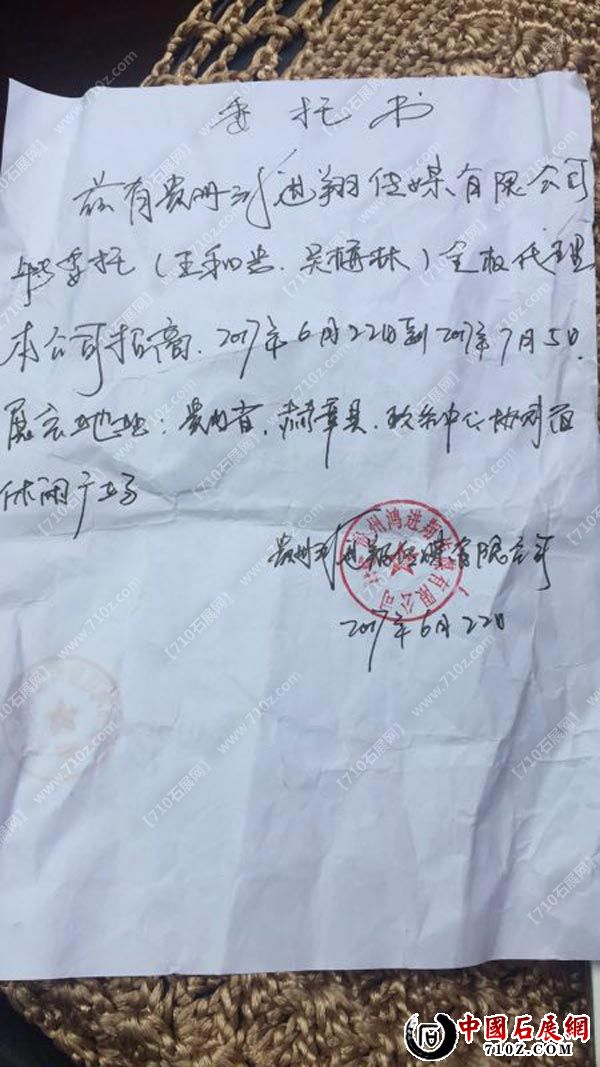 委托书
兹有贵州鸿进翔传媒有限公司
委托(王和兴、吴梅林)全权代理
本公司招商、2017年6月22日到2017年7月5日、
展会地址:贵州省、赫章县、政务中心协对面
休闲广场
贵州鸿进翔传媒有限公司
州鸿进翔传媒有限公司
2017年6月22日
【710石展网】www.710z.com
中國石展網
710Z.COM